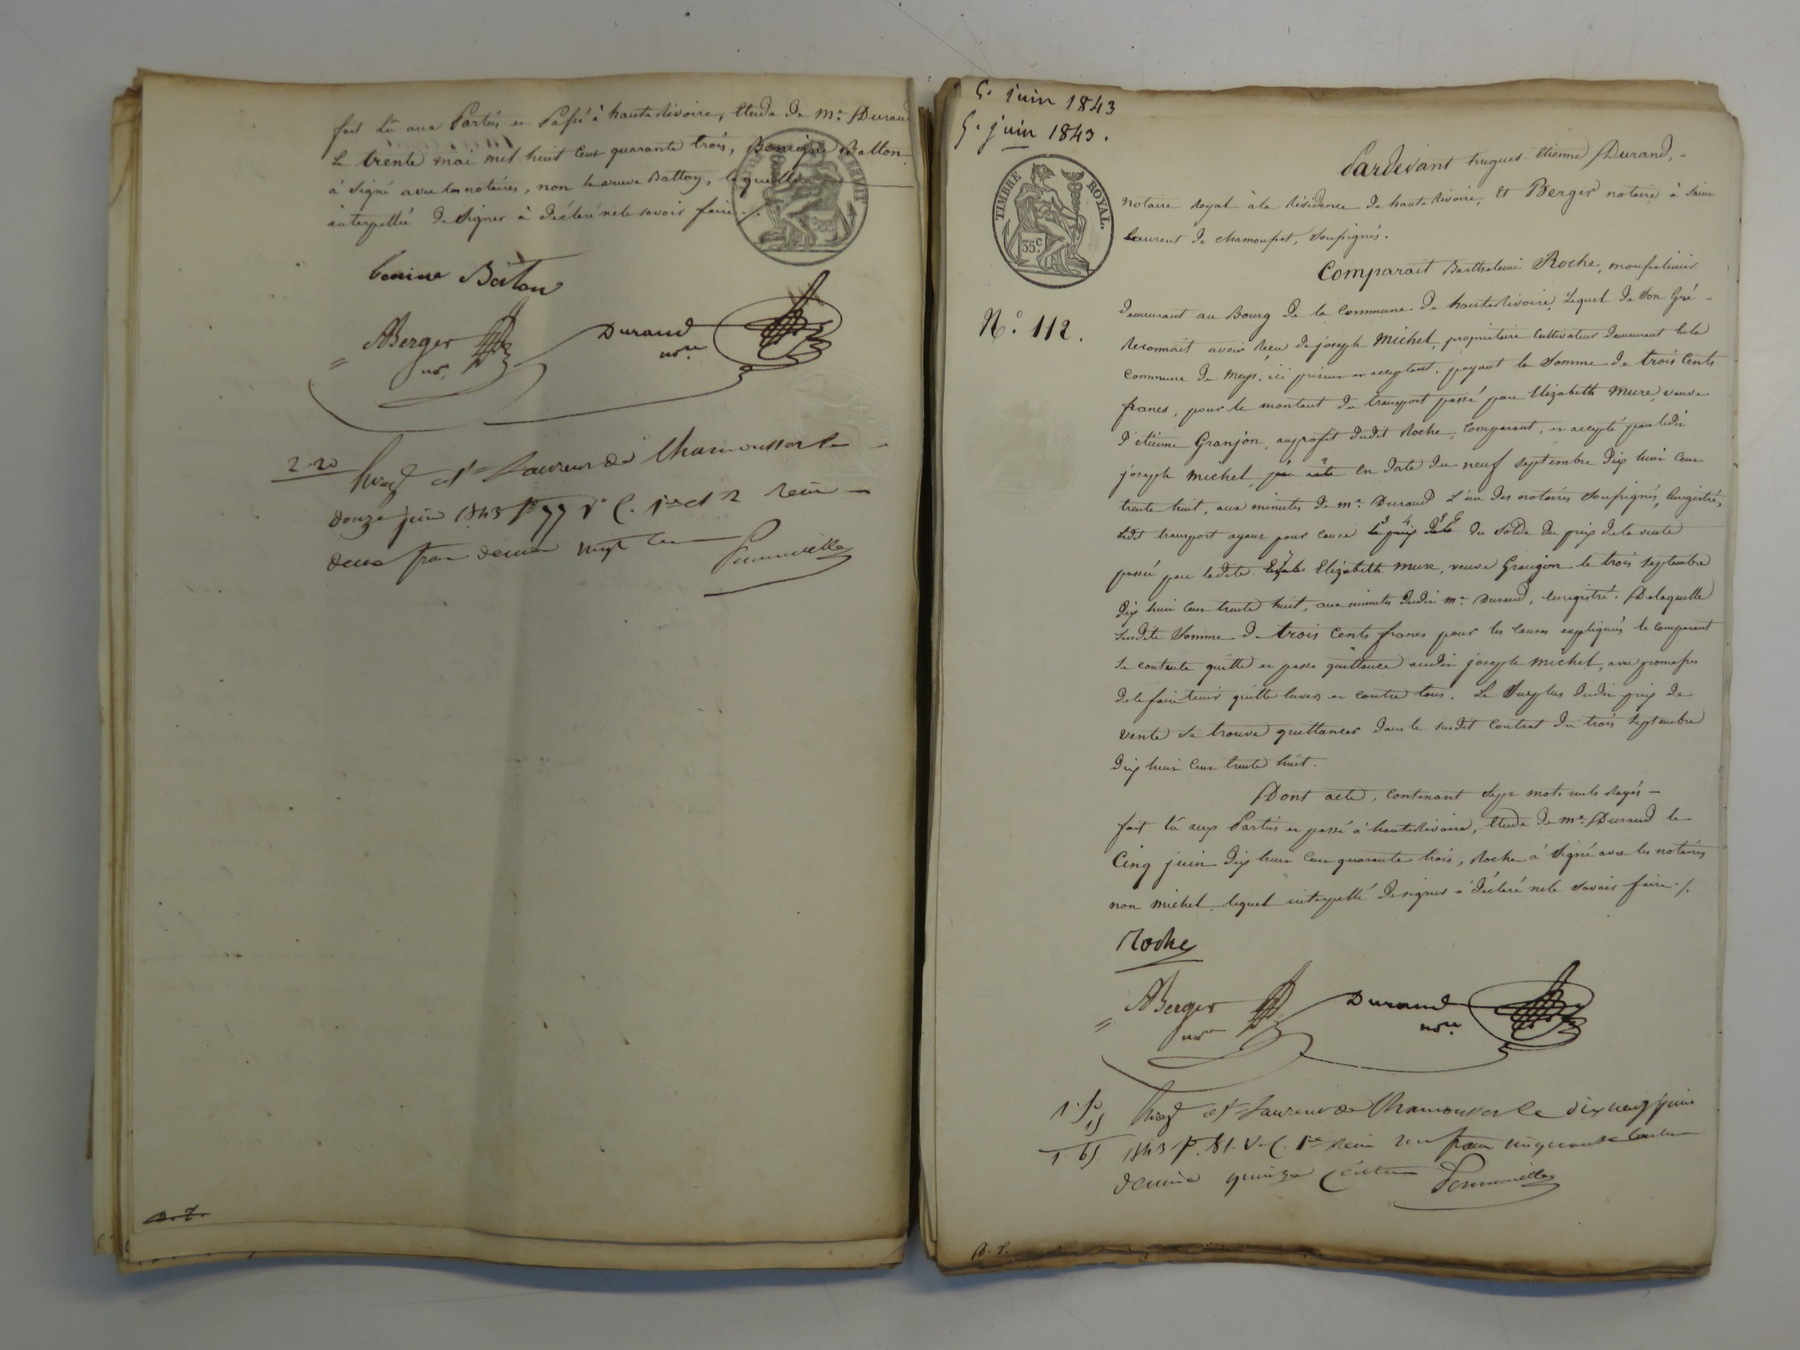 fait lû aux Parties et Passé à hauterivoire, Etude de me. Durand
Le trente mai mil huit cent quarante trois, Benoigne Batton
à signé avec les notaires, non la veuve Batton, laquelle
interpellée de signer à déclaré ne le savoir faire ./.
benine Baton
ABerger
nre.
Durand
nore.
2-20
Enregt à St Laurent de Chamousset le
douze juin 1843 fo 77 Vo C. 1re et 2 reçu
deux francs decime vingt cent
5. juin 1843
5. juin 1843.
TIMBRE ROYAL
35 c
No. 112.
Pardevant hugues Etienne Durand,
notaire royal à la Résidence de hauterivoire, Et Berger notaire à Saint
Laurent de chamousset, soussignés.
Comparait Barthelemi Roche,
demeurant au Bourg de la commune de hauterivoire, Lequel de son Gré
Reconnait avoir Reçu de joseph Michel, propriétaire cultivateur demeurant
commune de Meys, ici présent et acceptant, payant la somme de trois cents
francs, pour le montant du transport passé par Elizabeth Mure, veuve
d'etienne Granjon, au profit dudit Roche, comparant, et accepté par ledit
joseph Michel, en date du neuf septembre dix huit cent
trente huit, aux minutes de me. Durand L'un des notaires soussignés, Enregistré,
Ledit transport ayant pour cause le prix de la du solde du prix de la vente
passée par ladite Elizabeth Mure, veuve Granjon le trois septembre
dix huit cent trente huit, aux minutes dudit me. Durand, Enregistré. De laquelle
susdite somme de trois cents francs pour les causes expliquées le comparant
se contente quitte et passe quittance audit joseph Michel, avec promesse
de le faire tenir quitte envers et contre tous. Le surplus dudit prix de
vente se trouve quittancé dans le susdit contrat du trois septembre
dix huit cent trente huit.
Dont acte, contenant sept mots nuls rayés
fait lû aux Parties et passé à hauterivoire, Etude de me. Durand le
Cinq juin dix huit cent quarante trois, Roche à signé avec les notaires
non Michel, lequel interpellé de signer à déclaré ne le savoir faire ./.
Roche
ABerger
nre
Durand
nore.
1. 50
15
1. 65
Enregt à St Laurent de Chamousset le dix neuf juin
1843 fo. 81. V. C. 1re reçu un franc cinquante centimes
decime quinze centimes